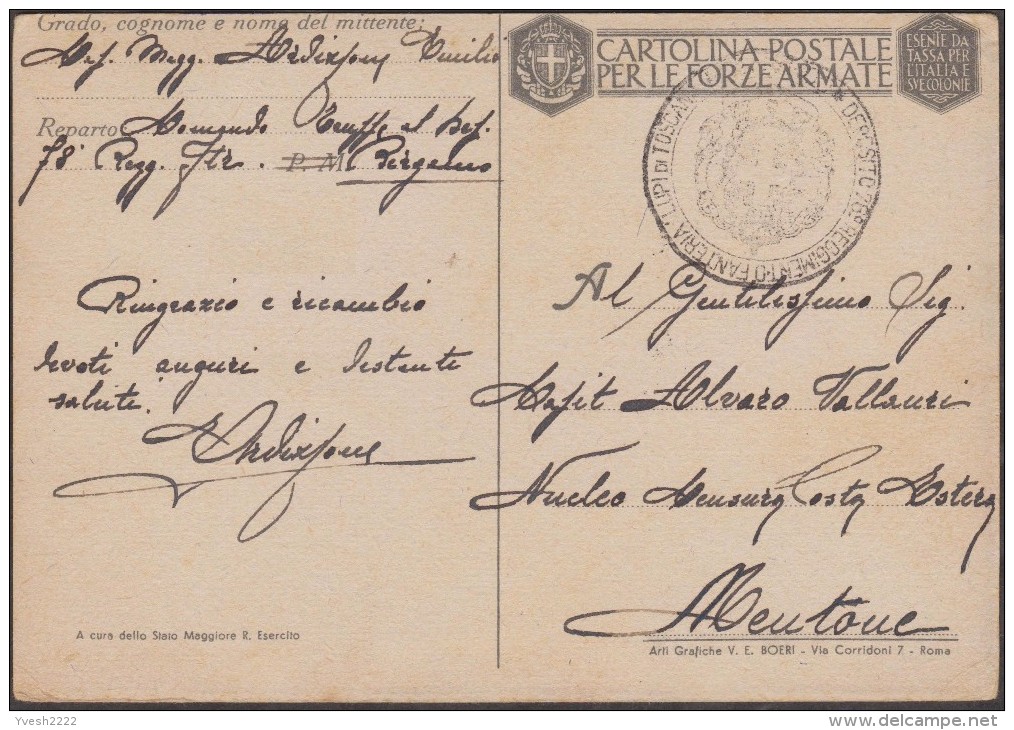 Grado, cognome e nome del mittente:
Magg. Ardizzone Emilio
Reparto Comando Truppe al Dep.
78° Regg. Ftr. P. M. Bergamo
Ringrazio e ricambio
devoti auguri e distinti
saluti.
Ardizzone
A cura dello Stato Maggiore R. Esercito
CARTOLINA POSTALE
PER LE FORZE ARMATE
ESENTE DA
TASSA PER
L'ITALIA E
SVE COLONIE
DEPOSITO 78° REGGIMENTO FANTERIA "LUPI DI TOSCANA
Al Gentilissimo Sig.
Capit Alvaro Vallauri
Nucleo Censura Posta Estera
Mentone
Arti Grafiche V. E. BOERI - Via Corridoni 7 - Roma
Yvesh2222
delcampe.net